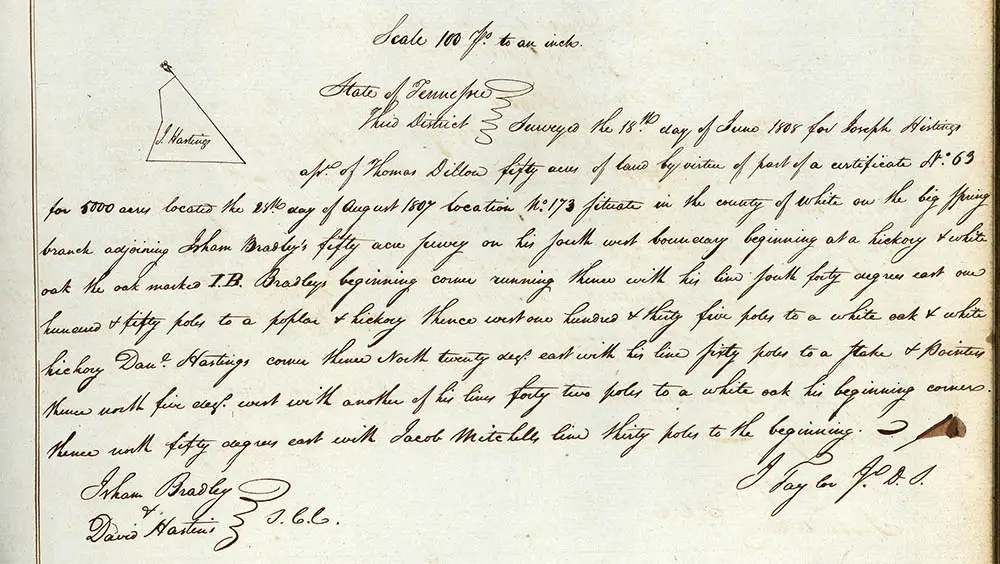 Scale 100 Ps. to an inch.
State of Tennessee
Third District
J. Hastings
Surveyed the 18th day of June 1808 for Joseph Histings
asse. of Thomas Dillon fifty acres of land by virtue of part of a certificate No. 63
for 5000 acres located the 28th day of August 1807 location No. 173 situate in the county of White on the big spring
branch adjoining Isham Bradley's fifty acre survey on his south west boundary beginning at a hickory & white
oak the oak marked I.B. Bradleys beginning corner running thence with his line south forty degrees east one
hundred & fifty poles to a poplar & hickory thence west one hundred & thirty five poles to a white oak & white
hickory Danl. Hastings corner thence North twenty degs. east with his line sixty poles to a stake & Pointers
thence north five degs. west with another of his lines forty two poles to a white oak his beginning corner.
thence north fifty degrees east with Jacob Mitchells line thirty poles to the beginning.
J Taylor Jr. D. S.
Isham Bradley
&
David Hastins
S. C. C.